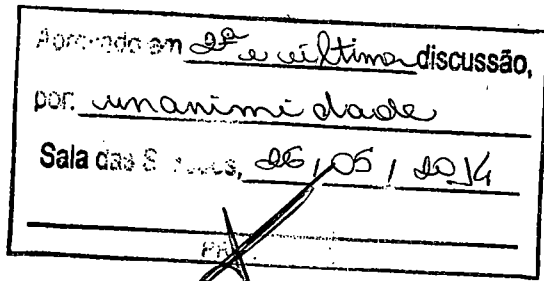 Aprovado em 2ª e última discussão,
por: unanimidade
Sala das S, 26 / 05 / 2014